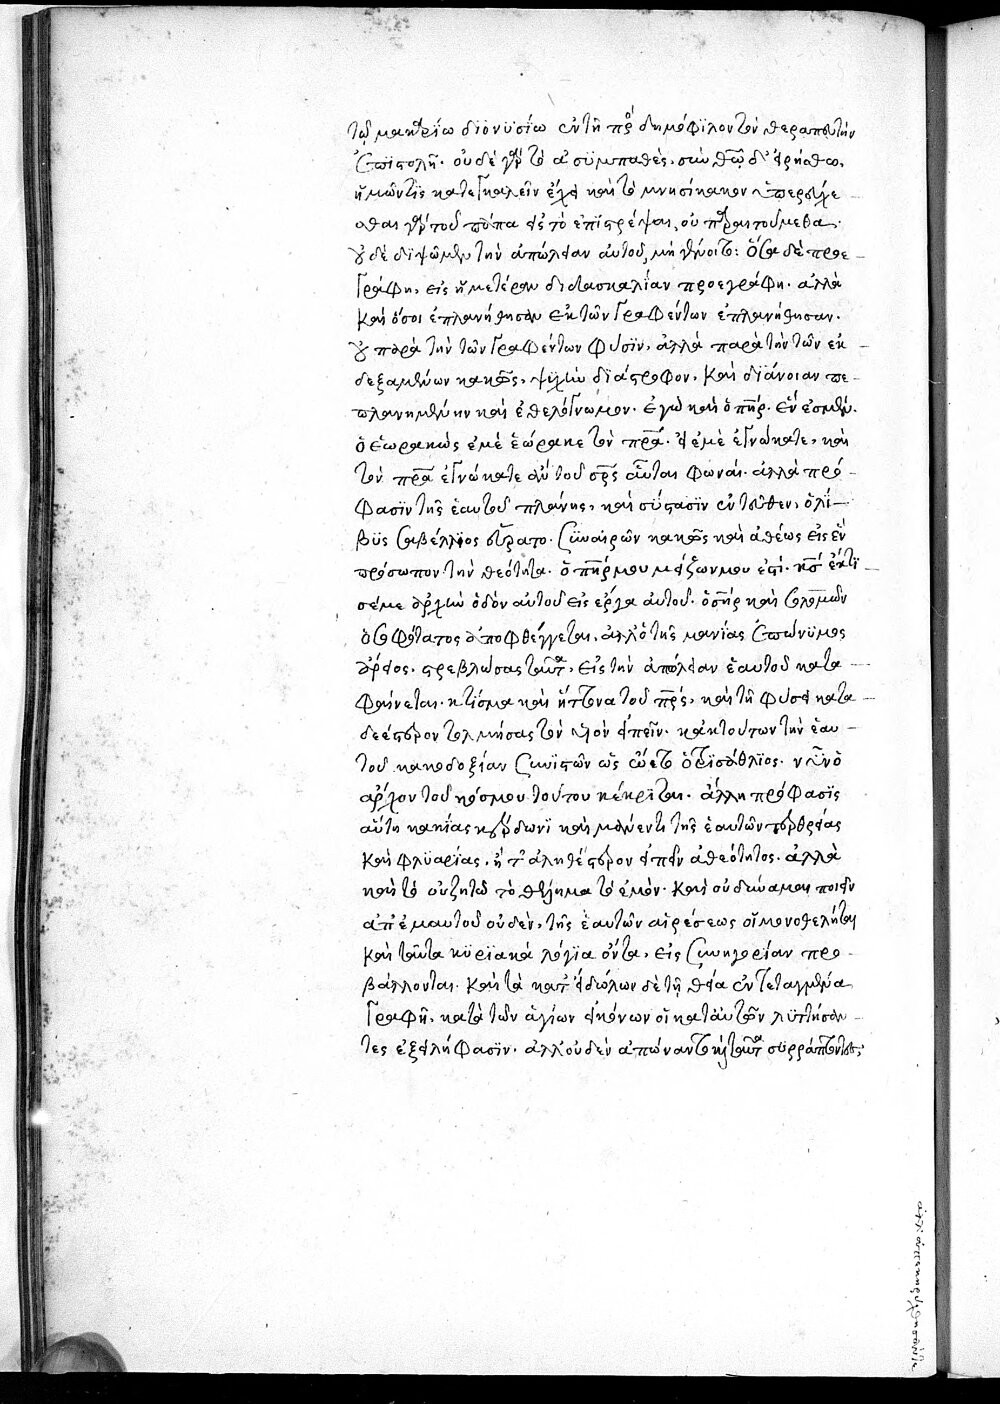 τῷ μακαρίω διονϋσίω ἐν τῆ πρὸς δημόφϊλον τὸν θεραπευτὴν
ἐπιστολῆ. οὐδὲ γὰρ τὸ ἀσϋμπαθὲς, σὺν θεῷ δ' εἰρήσθω,
ἡμῶν τὶς κατεγκαλεῖν ἔχει καὶ τὸ μνησίκακον. ὑπερεύχε
σθαι γὰρ τοῦ πάπα εἰς τὸ ἐπιστρέψαι, οὐ παραιτούμεθα.
οὐδὲ διψῶμεν τὴν ἀπώλειαν αὐτοῦ, μὴ γένοιτο: ὅσα δὲ προε
γράφη, εἰς ἡμετέραν διδασκαλίαν προεγράφη. ἀλλὰ
καὶ ὅσοι ἐπλανήθησαν ἐκ τῶν γραφέντων ἐπλανήθησαν.
οὐ παρὰ τὴν τῶν γραφέντων φύσϊν, ἀλλὰ παρὰ τὴν τῶν ἐκ
δεξαμένων κακῶς, ψυχὴν διάστροφον, καὶ διάνοιαν πε
πλανημένην καὶ ἐθελόγνωμον. ἐγὼ καὶ ὁ πηρ. ἕν ἐσμεν.
ὁ ἑωρακὼς ἐμὲ ἑώρακε τὸν πρα. εἰ ἐμὲ ἐγνώκατε, καὶ
τὸν πρα ἐγνώκατε ἂν τοῦ σρς αὗται φωναί. ἀλλὰ πρό
φασϊν τῆς ἑαυτοῦ πλάνης, καὶ σύστασϊν ἐντεῦθεν, ὁ λί
βϋς σαβέλλϊος εὕρατο. συναιρῶν κακῶς καὶ ἀθέως εἰς ἓν
πρόσωπον τὴν θεότητα. ὁ πηρ μου μείζων μου ἐστί. κς ἔκτϊ
σέ με ἀρχὴν ὁδὸν αὐτοῦ εἰς ἔργα αὐτοῦ. ὁ σηρ καὶ σολομῶν
ὁ σοφώτατος ἀποφθέγγεται. ἀλλ' ὁ τῆς μανίας ἐπώνϋμος
ἄρειος. στρεβλώσας ταῦτα, εἰς τὴν ἀπώλειαν ἑαυτοῦ κατα
φαίνεται. κτίσμα καὶ ἥττονα τοῦ πρς, καὶ τῆ φύσει κατα
δεέστερον τολμήσας τὸν υἱὸν εἰπεῖν. κἀκ τούτων τὴν ἑαυ
τοῦ κακοδοξίαν συνϊστῶν ὡς ᾤετο ὁ τρϊσάθλϊος. νῦν ὁ
ἄρχων τοῦ κόσμου τούτου κέκρϊται. ἄλλη πρόφασϊς
αὕτη κακίας κέρδωνϊ καὶ μάνεντι τῆς ἑαυτῶν τερθρείας
καὶ φλϋαρίας, ἢ τό ἀληθέστερον εἰπεῖν ἀθεότητος. ἀλλὰ
καὶ τὸ οὐ ζητῶ τὸ θέλημα τὸ ἐμὸν. καὶ οὐ δύναμαι ποιεῖν
ἀπ' ἐμαυτοῦ οὐδὲν, τῆς ἑαυτῶν αἱρέσεως οἱ μονοθελῆται
καὶ ταῦτα κϋρϊακὰ λόγϊα ὄντα, εἰς συνηγορίαν προ
βάλλονται. καὶ τὰ κατ' εἰδώλων δὲ τῆ θεία ἐντεταγμένα
γραφῆ, κατὰ τῶν ἁγίων εἰκόνων οἱ κατ' αὐτῶν λϋττήσαν
τες ἐξειλήφασϊν. ἀλλ' οὐδὲν ἀπώναντο καὶ ταῦτα συρράπτοντες